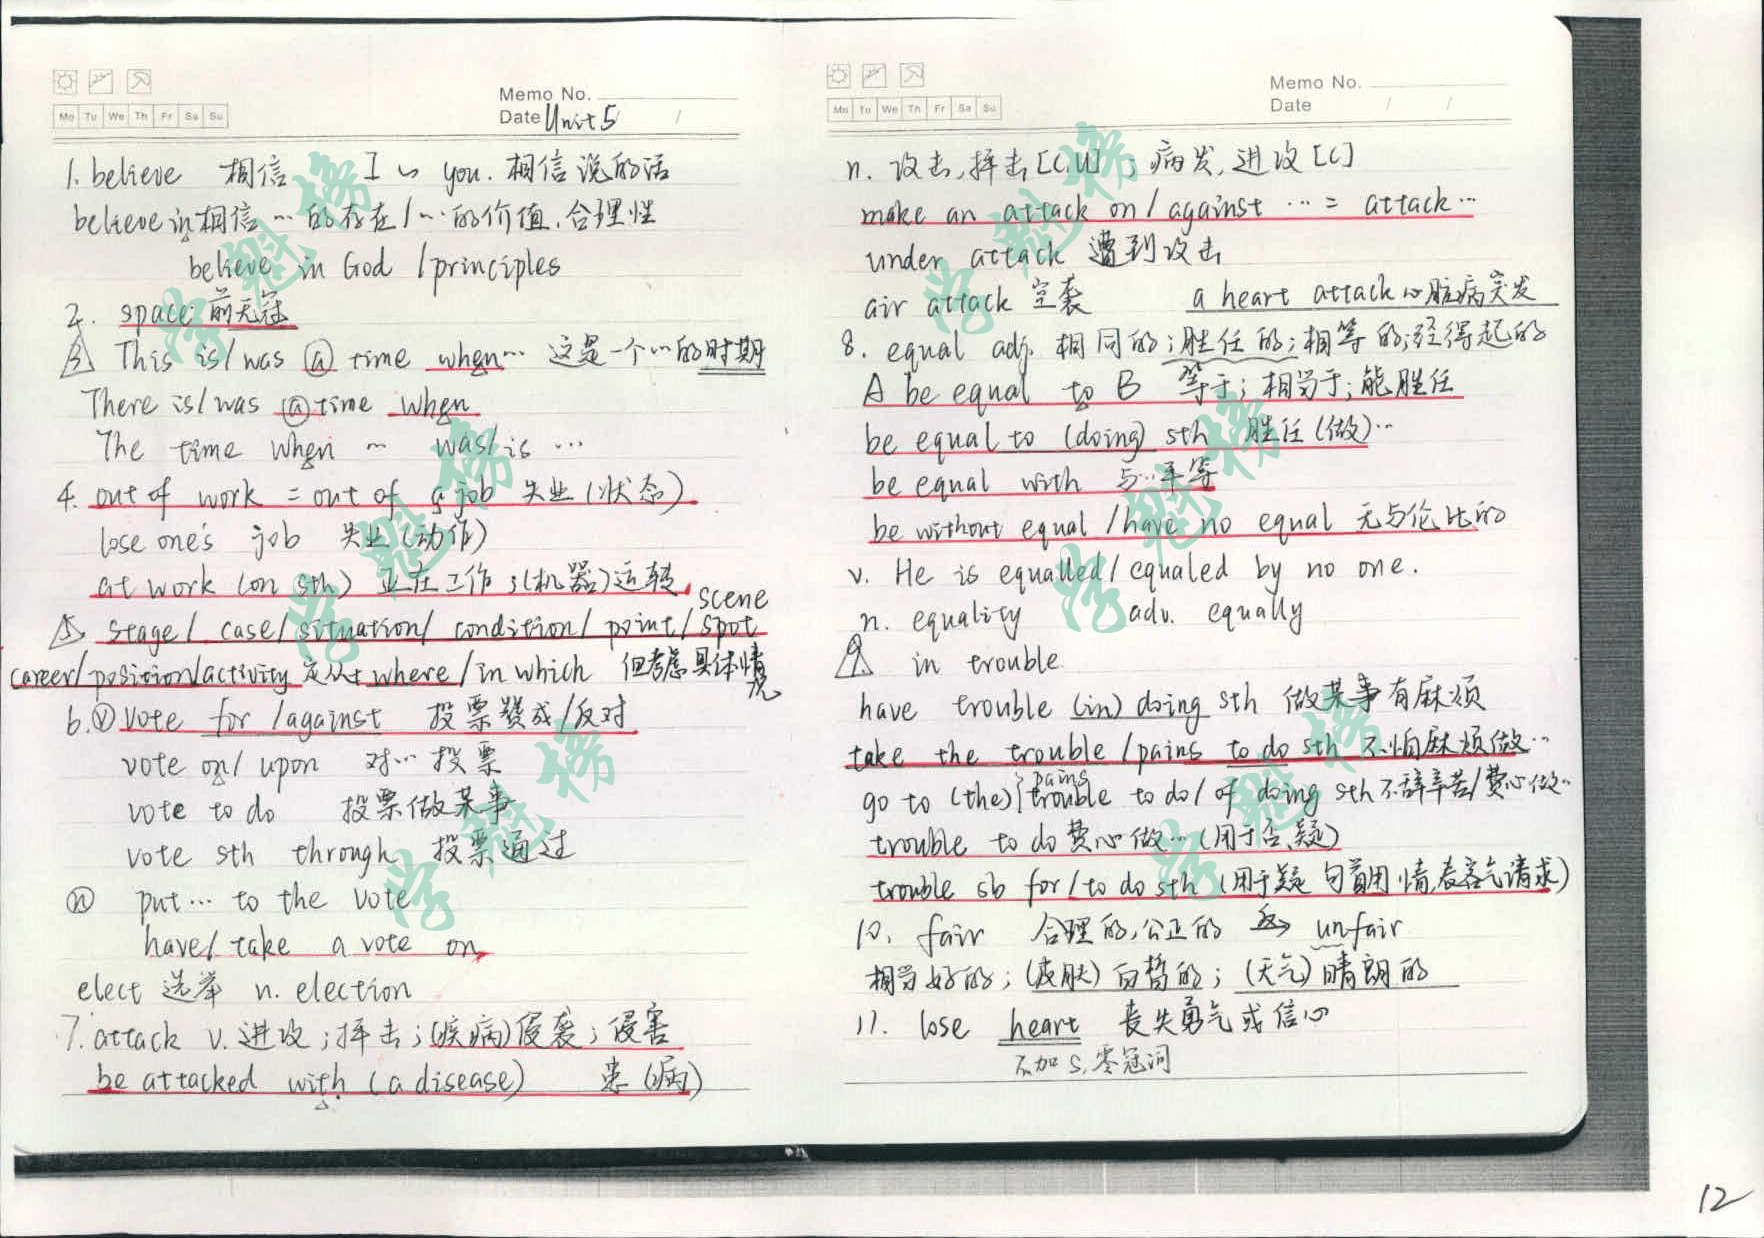 Memo No.
Mo Tu We Th Fr Sa Su
Date Unit 5 /
1. believe 相信 I ~ you. 相信说的话
believe in 相信…的存在/…的价值,合理性
believe in God / principles
2. space 前无冠
3 This is/was a time when… 这是一个…的时期
There is/was a time when
The time when … was/is …
4. out of work = out of a job 失业(状态)
lose one's job 失业(动作)
at work (on sth) 正在工作;(机器)运转
scene
5 stage/ case/ situation/ condition/ point/ spot
career/position/activity 定从+ where/in which 但考虑具体情况
6. v vote for /against 投票赞成/反对
vote on/ upon 对…投票
vote to do 投票做某事
vote sth through 投票通过
n put… to the vote
have/ take a vote on
elect 选举 n. election
7. attack v. 进攻;抨击;(疾病)侵袭;侵害
be attacked with (a disease) 患(病)
Memo No.
Mo Tu We Th Fr Sa Su
Date / /
n. 攻击,抨击[C,U];病发,进攻[C]
make an attack on/ against … = attack…
under attack 遭到攻击
air attack 空袭 a heart attack 心脏病突发
8. equal adj. 相同的;胜任的;相等的;经得起的
A be equal to B 等于;相当于;能胜任
be equal to (doing) sth 胜任(做)…
be equal with 与…平等
be without equal /have no equal 无与伦比的
v. He is equalled/ equaled by no one.
n. equality adv. equally
9 in trouble
have trouble (in) doing sth 做某事有麻烦
take the trouble /pains to do sth 不怕麻烦做…
pains
go to (the) trouble to do/ of doing sth 不辞辛苦/费心做…
trouble to do 费心做…(用于否、疑)
trouble sb for/to do sth (用于疑 句首用情,表客气请求)
10. fair 合理的,公正的 反→ unfair
相当好的;(皮肤)白皙的;(天气)晴朗的
11. lose heart 丧失勇气或信心
不加s,零冠词
12
学魁榜
学魁榜
学魁榜
学魁榜
学魁榜
学魁榜